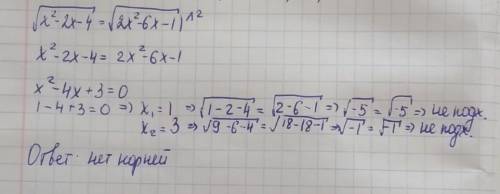 √(x²-2x-4) = √(2x²-6x-1) |^2
x²-2x-4 = 2x²-6x-1
x²-4x+3=0
1-4+3=0 ⇒ x₁=1 ⇒ √(1-2-4) = √(2-6-1) ⇒ √-5 = √-5 ⇒ не подх.
x₂=3 ⇒ √(9-6-4) = √(18-18-1) ⇒ √-1 = √-1 ⇒ не подх.
Ответ: нет корней